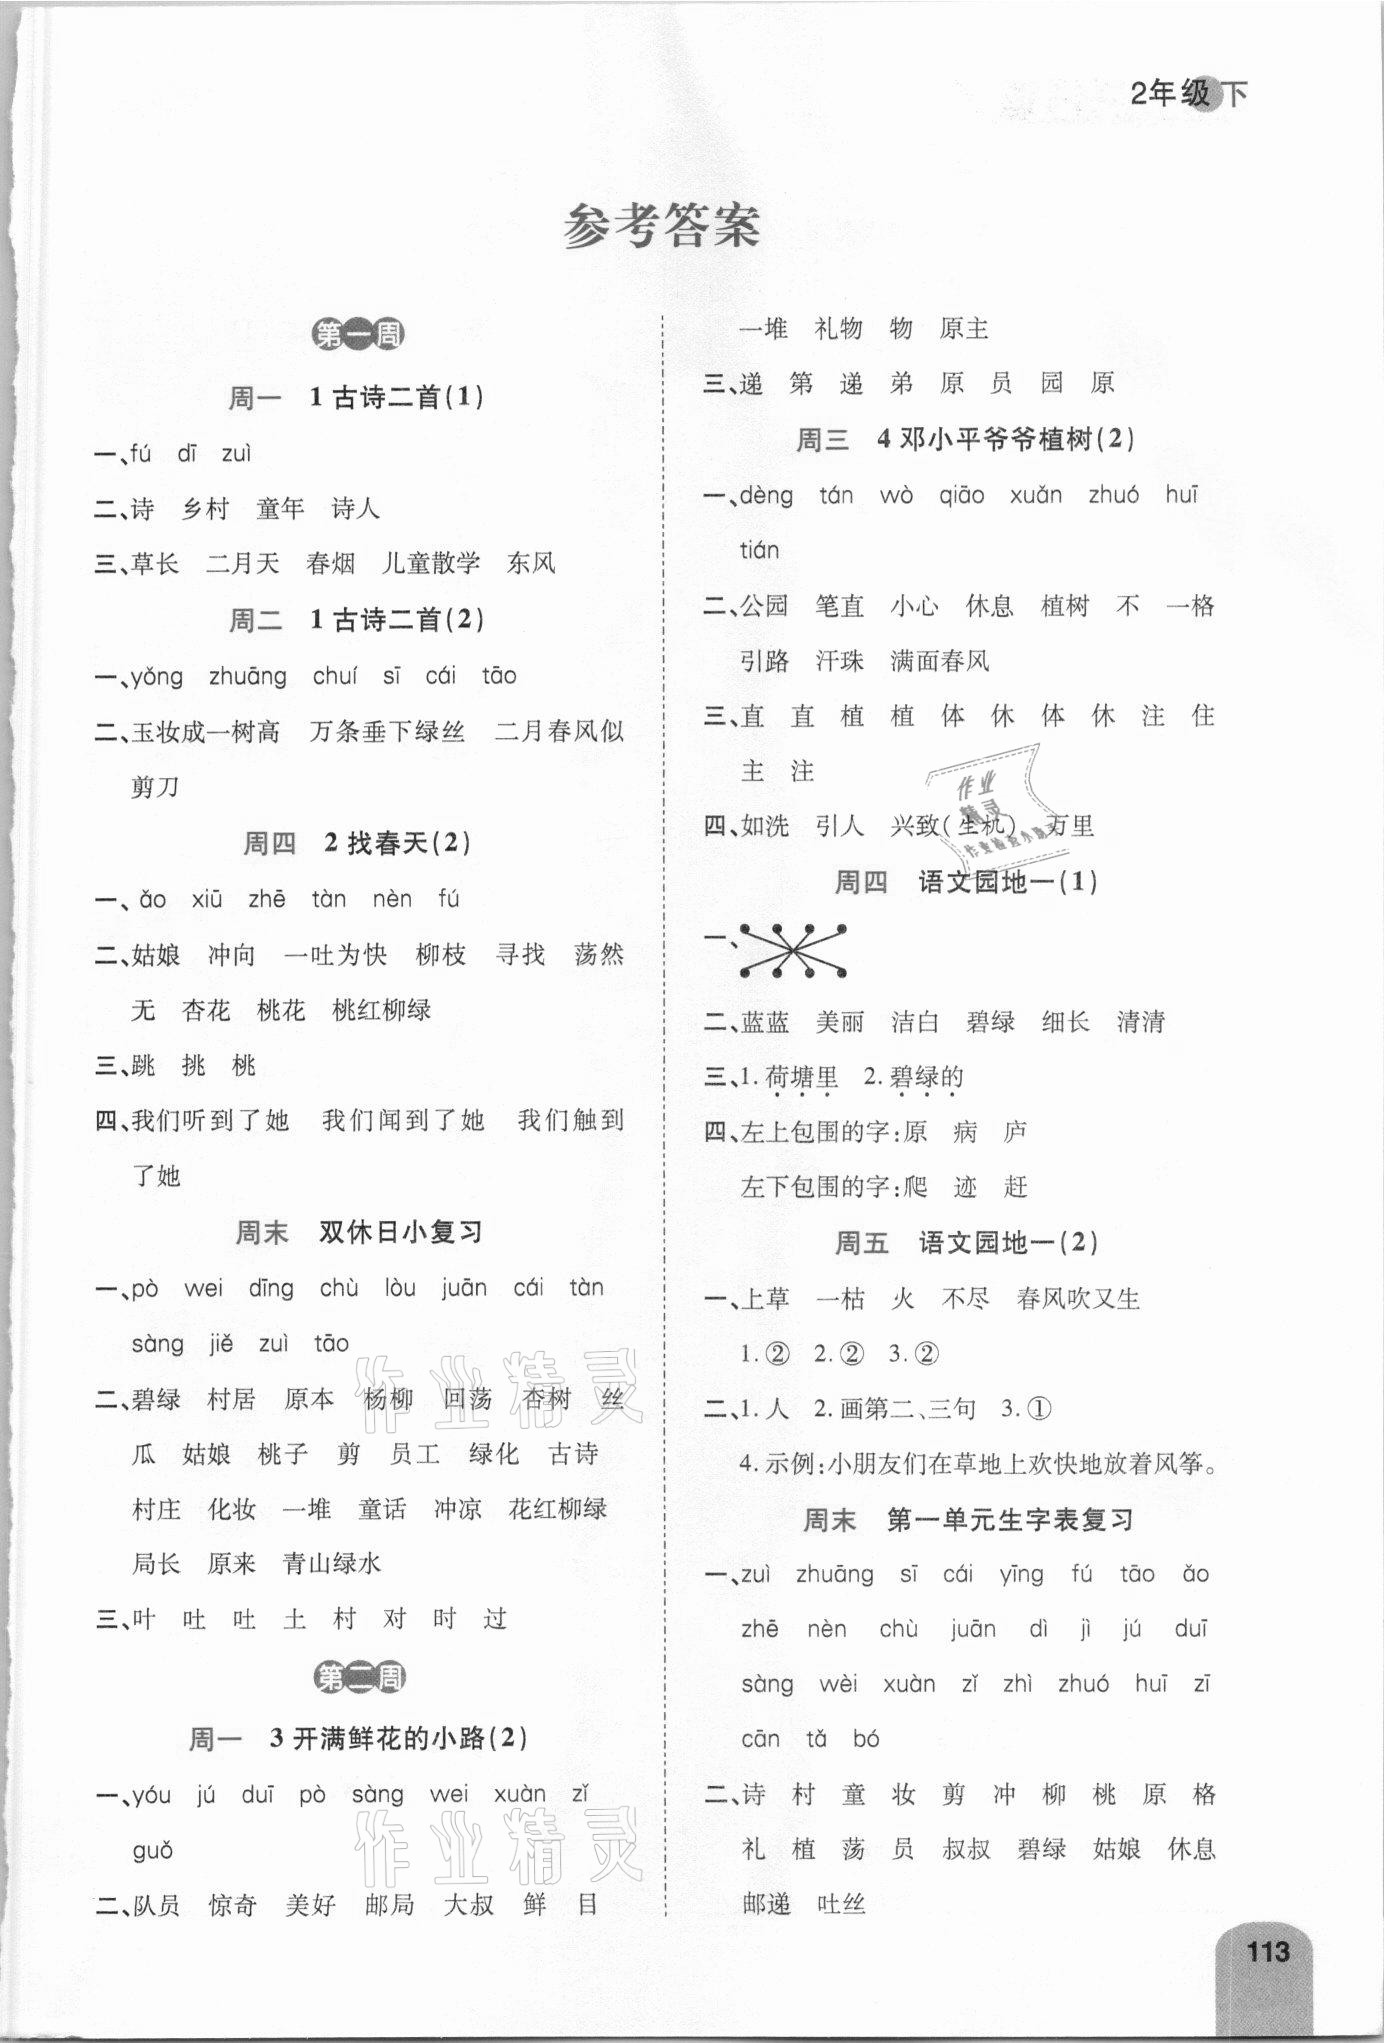 2年级下
参考答案
第一周
周一 1 古诗二首(1)
一、fú dī zuì
二、诗 乡村 童年 诗人
三、草长 二月天 春烟 儿童散学 东风
周二 1 古诗二首(2)
一、yǒng zhuāng chuí sī cái tāo
二、玉妆成一树高 万条垂下绿丝 二月春风似
剪刀
周四 2 找春天(2)
一、ǎo xiū zhē tàn nèn fú
二、姑娘 冲向 一吐为快 柳枝 寻找 荡然
无 杏花 桃花 桃红柳绿
三、跳 挑 桃
四、我们听到了她 我们闻到了她 我们触到
了她
周末 双休日小复习
一、pò wei dīng chù lòu juān cái tàn
sàng jiě zuì tāo
二、碧绿 村居 原本 杨柳 回荡 杏树 丝
瓜 姑娘 桃子 剪 员工 绿化 古诗
村庄 化妆 一堆 童话 冲凉 花红柳绿
局长 原来 青山绿水
三、叶 吐 吐 土 村 对 时 过
第二周
周一 3 开满鲜花的小路(2)
一、yóu jú duī pò sàng wei xuàn zǐ
guǒ
二、队员 惊奇 美好 邮局 大叔 鲜 目
一堆 礼物 物 原主
三、递 第 递 弟 原 员 园 原
周三 4 邓小平爷爷植树(2)
一、dèng tán wò qiāo xuǎn zhuó huī
tián
二、公园 笔直 小心 休息 植树 不 一格
引路 汗珠 满面春风
三、直 直 植 植 体 休 体 休 注 住
主 注
四、如洗 引人 兴致(生机) 万里
周四 语文园地一(1)
一、
二、蓝蓝 美丽 洁白 碧绿 细长 清清
三、1. 荷塘里 2. 碧绿的
四、左上包围的字:原 病 庐
左下包围的字:爬 迹 赶
周五 语文园地一(2)
一、上草 一枯 火 不尽 春风吹又生
1. ② 2. ② 3. ②
二、1. 人 2. 画第二、三句 3. ①
4. 示例:小朋友们在草地上欢快地放着风筝。
周末 第一单元生字表复习
一、zuì zhuāng sī cái yīng fú tāo ǎo
zhē nèn chù juān dì jì jú duī
sàng wèi xuàn zǐ zhì zhuó huī zī
cān tǎ bó
二、诗 村 童 妆 剪 冲 柳 桃 原 格
礼 植 荡 员 叔叔 碧绿 姑娘 休息
邮递 吐丝
作业精灵
作业精灵
作业
精灵
113